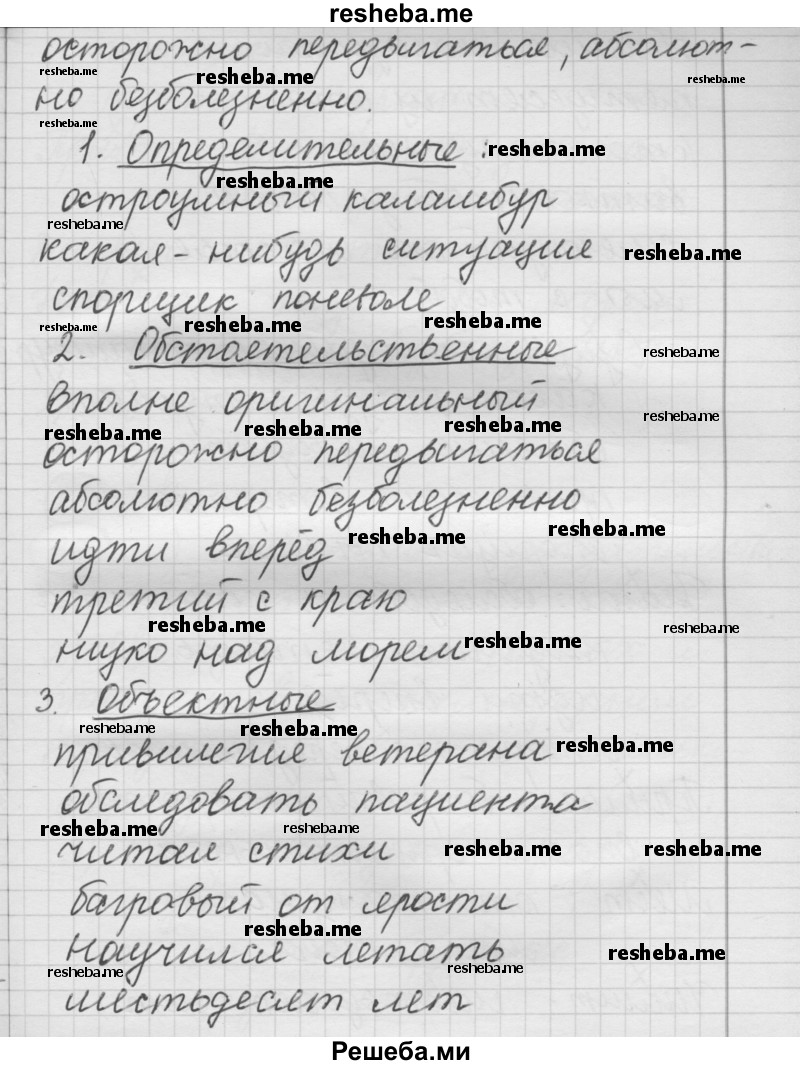 resheba.me
осторожно передвигаться, абсолют-
resheba.me resheba.me resheba.me
но безболезненно.
resheba.me
1. Определительные : resheba.me
resheba.me
остроумный каламбур
resheba.me
какая-нибудь ситуация resheba.me
спорщик поневоле
resheba.me resheba.me resheba.me
2. Обстоятельственные resheba.me
вполне оригинальный resheba.me
resheba.me resheba.me resheba.me
осторожно передвигаться
абсолютно безболезненно
идти вперёд resheba.me resheba.me
третий с краю
resheba.me resheba.me
низко над морем resheba.me
3. Объектные
resheba.me resheba.me
привилегия ветерана resheba.me
обследовать пациента
resheba.me resheba.me
читал стихи resheba.me resheba.me
багровый от ярости
resheba.me
научился летать resheba.me
resheba.me resheba.me
шестьдесят лет
Решеба.ми